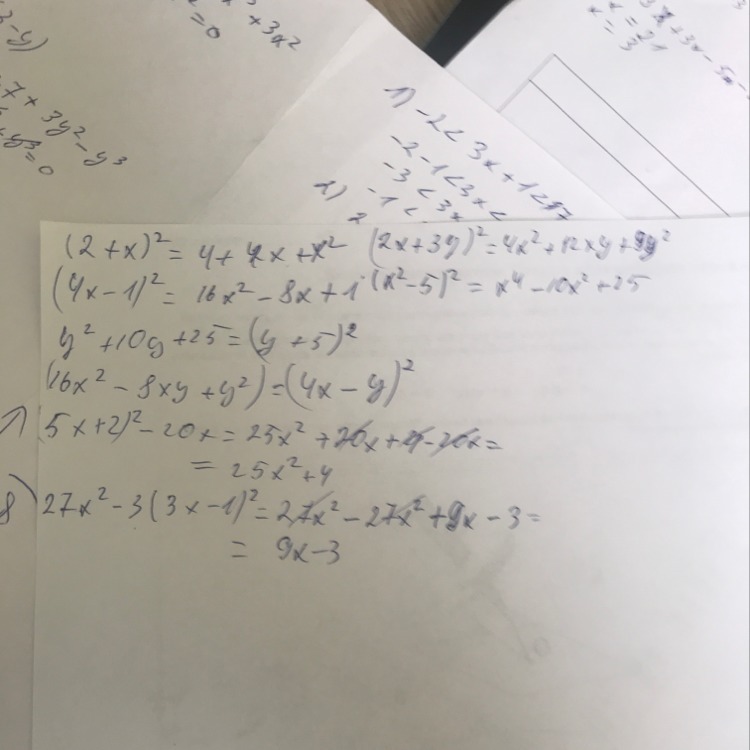 3x²
=0
7 + 3y² - y³
=0
x = 21
x = 3
1) -2 < 3x + 1 <
-2 - 1 < 3x <
-3 < 3x
2) -1 <
(2 + x)² = 4 + 4x + x² (2x + 3y)² = 4x² + 12xy + 9y²
(4x - 1)² = 16x² - 8x + 1 (x² - 5)² = x⁴ - 10x² + 25
y² + 10y + 25 = (y + 5)²
(16x² - 8xy + y²) = (4x - y)²
7) (5x + 2)² - 20x = 25x² + 20x + 4 - 20x =
= 25x² + 4
8) 27x² - 3(3x - 1)² = 27x² - 27x² + 9x - 3 =
= 9x - 3